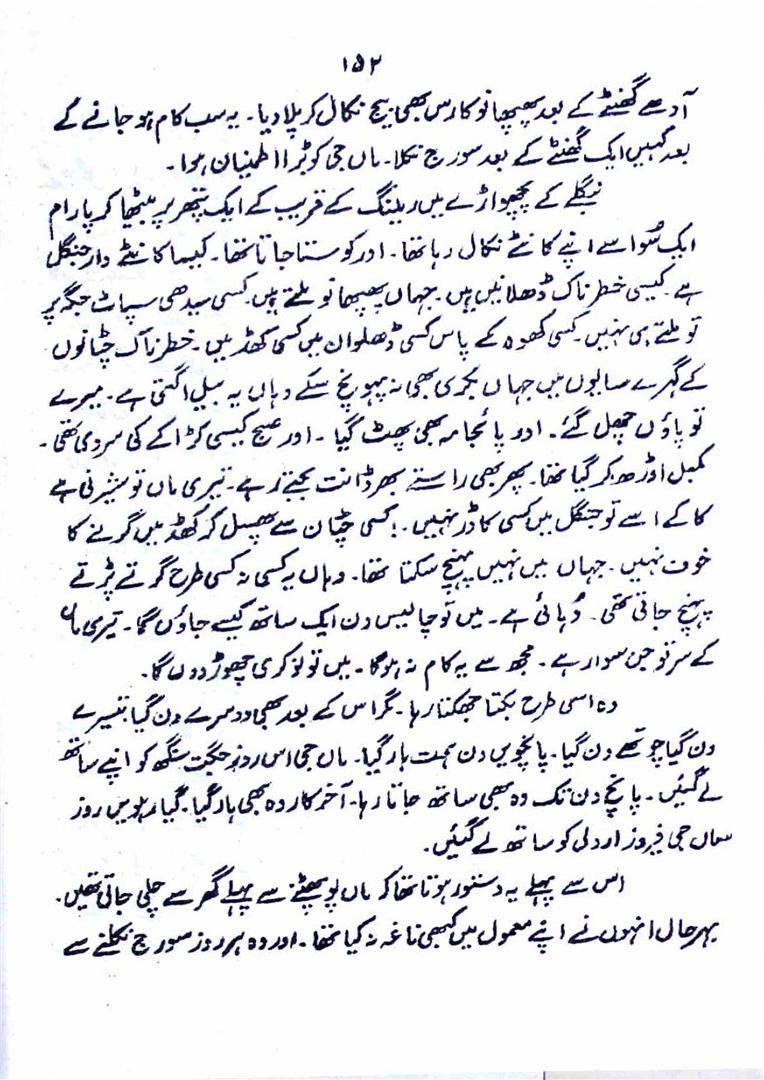 ۱۵۲
آدھے گھنٹے کے بعد پھپھانو کا رس بھی بیج نکال کر پلا دیا۔ یہ سب کام ہو جانے کے
بعد کہیں ایک گھنٹے کے بعد سورج نکلا۔ ماں جی کو بڑا اطمینان ہوا۔
بنگلے کے پچھواڑے میں ریلنگ کے قریب کے ایک پتھر پر بیٹھا کرپارام
ایک سُوا سے اپنے کانٹے نکال رہا تھا۔ اور کوستا جاتا تھا۔ کیسا کانٹے دار جنگل
ہے۔ کیسی خطرناک ڈھلانیں ہیں۔ جہاں پھپھانو ملتے ہیں کسی سیدھی سپاٹ جگہ پر
تو ملتے ہی نہیں۔ کسی کھوہ کے پاس کسی ڈھلوان میں کسی کھڈ میں۔ خطرناک چٹانوں
کے گہرے سایوں میں جہاں بکری بھی نہ پہونچ سکے وہاں یہ بیل اگتی ہے۔ میرے
تو پاؤں چھل گئے۔ اور پائجامہ بھی پھٹ گیا۔ اور صبح کیسی کڑاکے کی سردی تھی۔
کمبل اوڑھ کر گیا تھا۔ پھر بھی راستے بھر دانت بجتے رہے۔ تیری ماں تو شیرنی ہے
کاکے اسے تو جنگل میں کسی کا ڈر نہیں۔ کسی چٹان سے پھسل کر کھڈ میں گرنے کا
خوف نہیں۔ جہاں میں نہیں پہنچ سکتا تھا۔ وہاں یہ کسی نہ کسی طرح گرتے پڑتے
پہنچ جاتی تھی۔ دُہائی ہے۔ میں تو چالیس دن ایک ساتھ کیسے جاؤں گا۔ تیری ماں
کے سر تو جن سوار ہے۔ مجھ سے یہ کام نہ ہوگا۔ میں تو نوکری چھوڑ دوں گا۔
وہ اسی طرح بکتا جھکتا رہا۔ مگر اس کے بعد بھی دوسرے دن گیا تیسرے
دن گیا چوتھے دن گیا۔ پانچویں دن ہمت ہار گیا۔ ماں جی اس روز جگت سنگھ کو اپنے ساتھ
لے گئیں۔ پانچ دن تک وہ بھی ساتھ جاتا رہا۔ آخرکار وہ بھی ہار گیا۔ گیارہویں روز
ماں جی فیروز اردلی کو ساتھ لے گئیں۔
اس سے پہلے یہ دستور ہوتا تھا کہ ماں پو پھٹنے سے پہلے گھر سے چلی جاتی تھیں۔
بہرحال انہوں نے اپنے معمول میں کبھی ناغہ نہ کیا تھا۔ اور وہ ہر روز سورج نکلنے سے